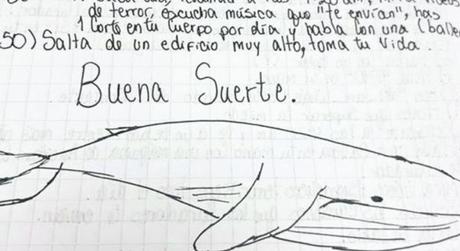 de terror, escucha música que "te envían", has
1 corte en tu cuerpo por día y habla con una
50) Salta de un edificio muy alto, toma tu vida.
Buena Suerte.